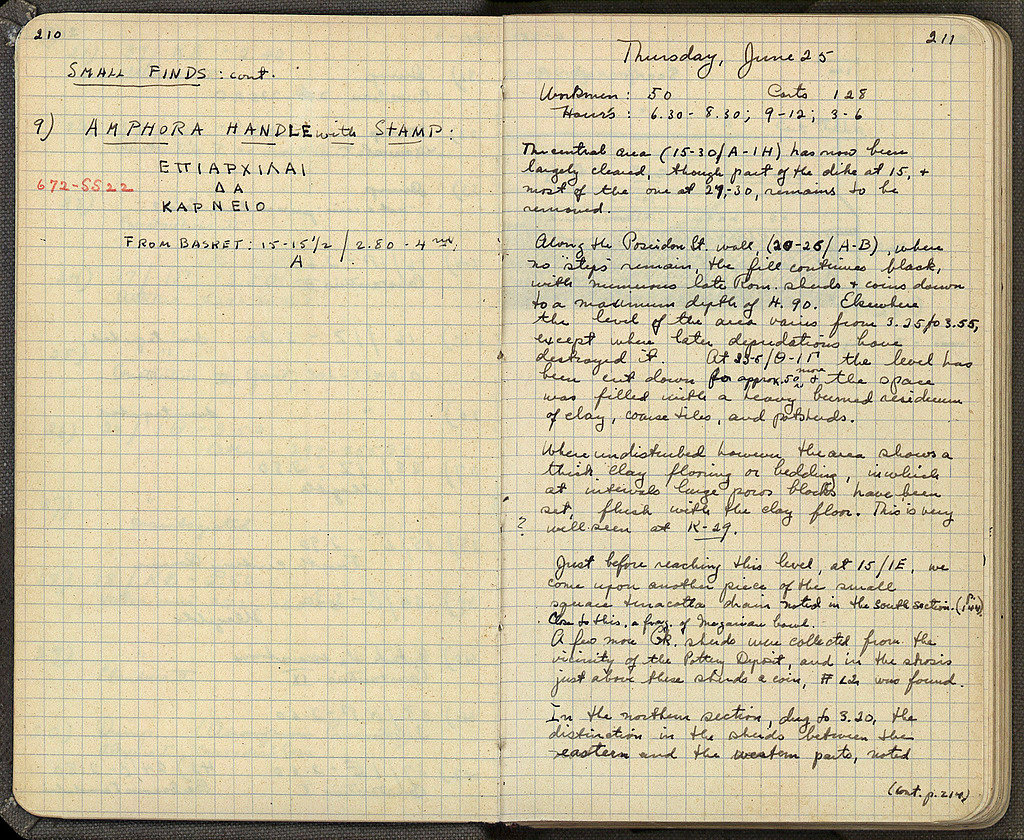 210
SMALL FINDS : cont.
9) AMPHORA HANDLE with STAMP :
ΕΠΙΑΡΧΙΛΑΙ
672-5522
ΔΑ
ΚΑΡΝΕΙΟ
FROM BASKET : 15-15½ / 2.80 - 4 m.
A
211
Thursday, June 25
Workmen : 50 Carts 128
Hours : 6.30 - 8.30; 9-12; 3-6
The central area (15-30/A-IH) has now been
largely cleared, though part of the dike at 15, +
most of the one at 29-30, remains to be
removed.
Along the Poseidon St. wall, (20-26/A-B), where
no "steps" remain, the fill continues black,
with numerous late Rom. sherds + coins down
to a maximum depth of 4.90. Elsewhere
the level of the area varies from 3.25 to 3.55,
except where later depredations have
destroyed it. At /Θ-ΙΓ the level has
been cut down for approx. .50 more + the space
was filled with a heavy burned residuum
of clay, coarse tiles, and potsherds.
Where undisturbed however the area shows a
thick clay flooring or bedding, in which
at intervals large poros blocks have been
set, flush with the clay floor. This is very
? well seen at K-29.
Just before reaching this level, at 15/IE, we
come upon another piece of the small
square terracotta drain noted in the south section.
Close to this, a frag. of Megarian bowl.
A few more Gk. sherds were collected from the
vicinity of the Pottery Deposit, and in the strosis
just above these sherds a coin, # 12 was found.
In the northern section, dug to 3.20, the
distinction in the sherds between the
eastern and the western parts, noted
(Cont. p. 214)